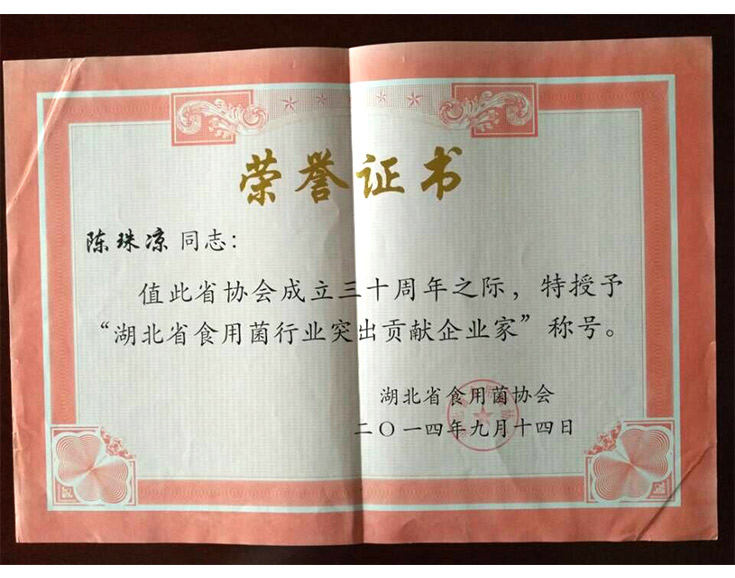 荣誉证书
陈珠凉 同志：
值此省协会成立三十周年之际，特授予
“湖北省食用菌行业突出贡献企业家”称号。
湖北省食用菌协会
二〇一四年九月十四日